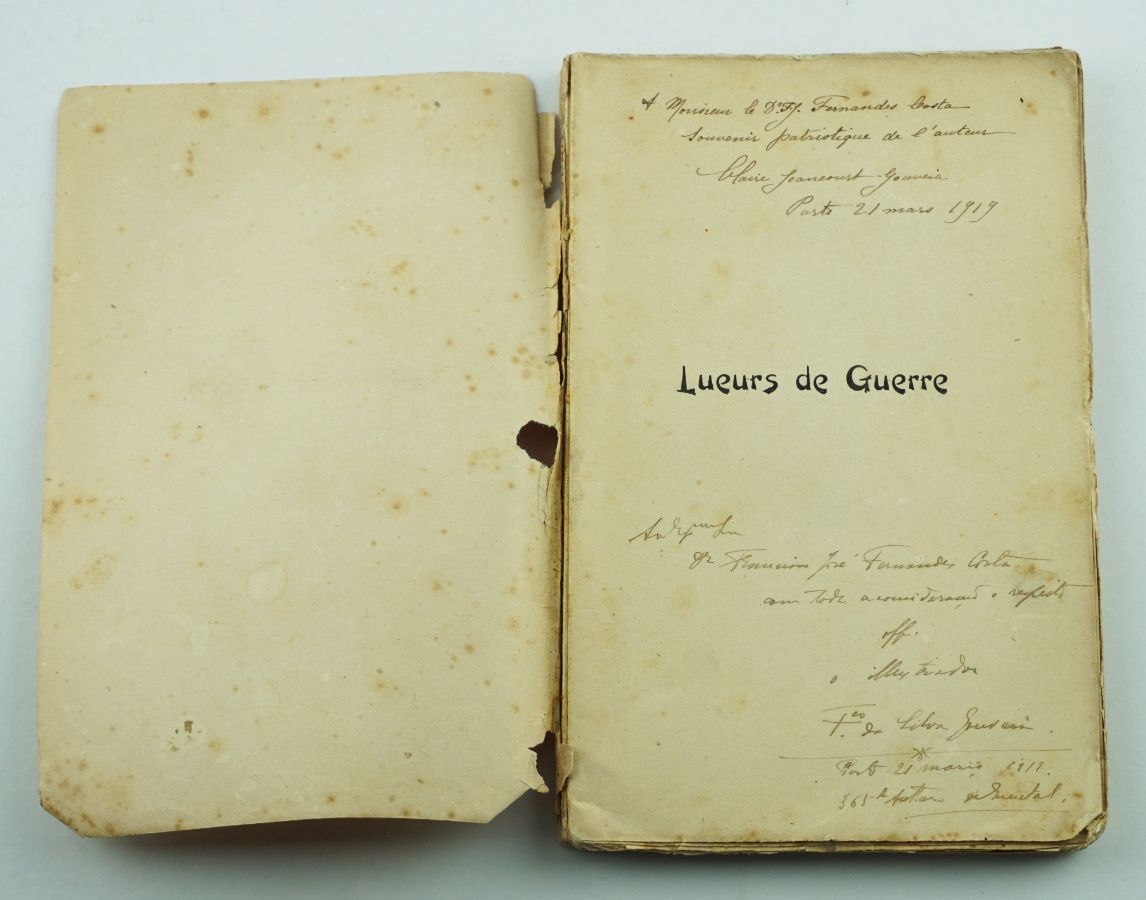 A Monsieur le Dr F. J. Fernandes Costa
Souvenir patriotique de l'auteur
Claire Jeancourt-Gouveia
Porto 21 mars 1919
Lueurs de Guerre
Dr Francisco José Fernandes Costa
com toda a consideração e respeito
off.
o illustrador
Fco da Silva Gouveia.
Porto 21 março 1919.
365-A Anthero de Quental.